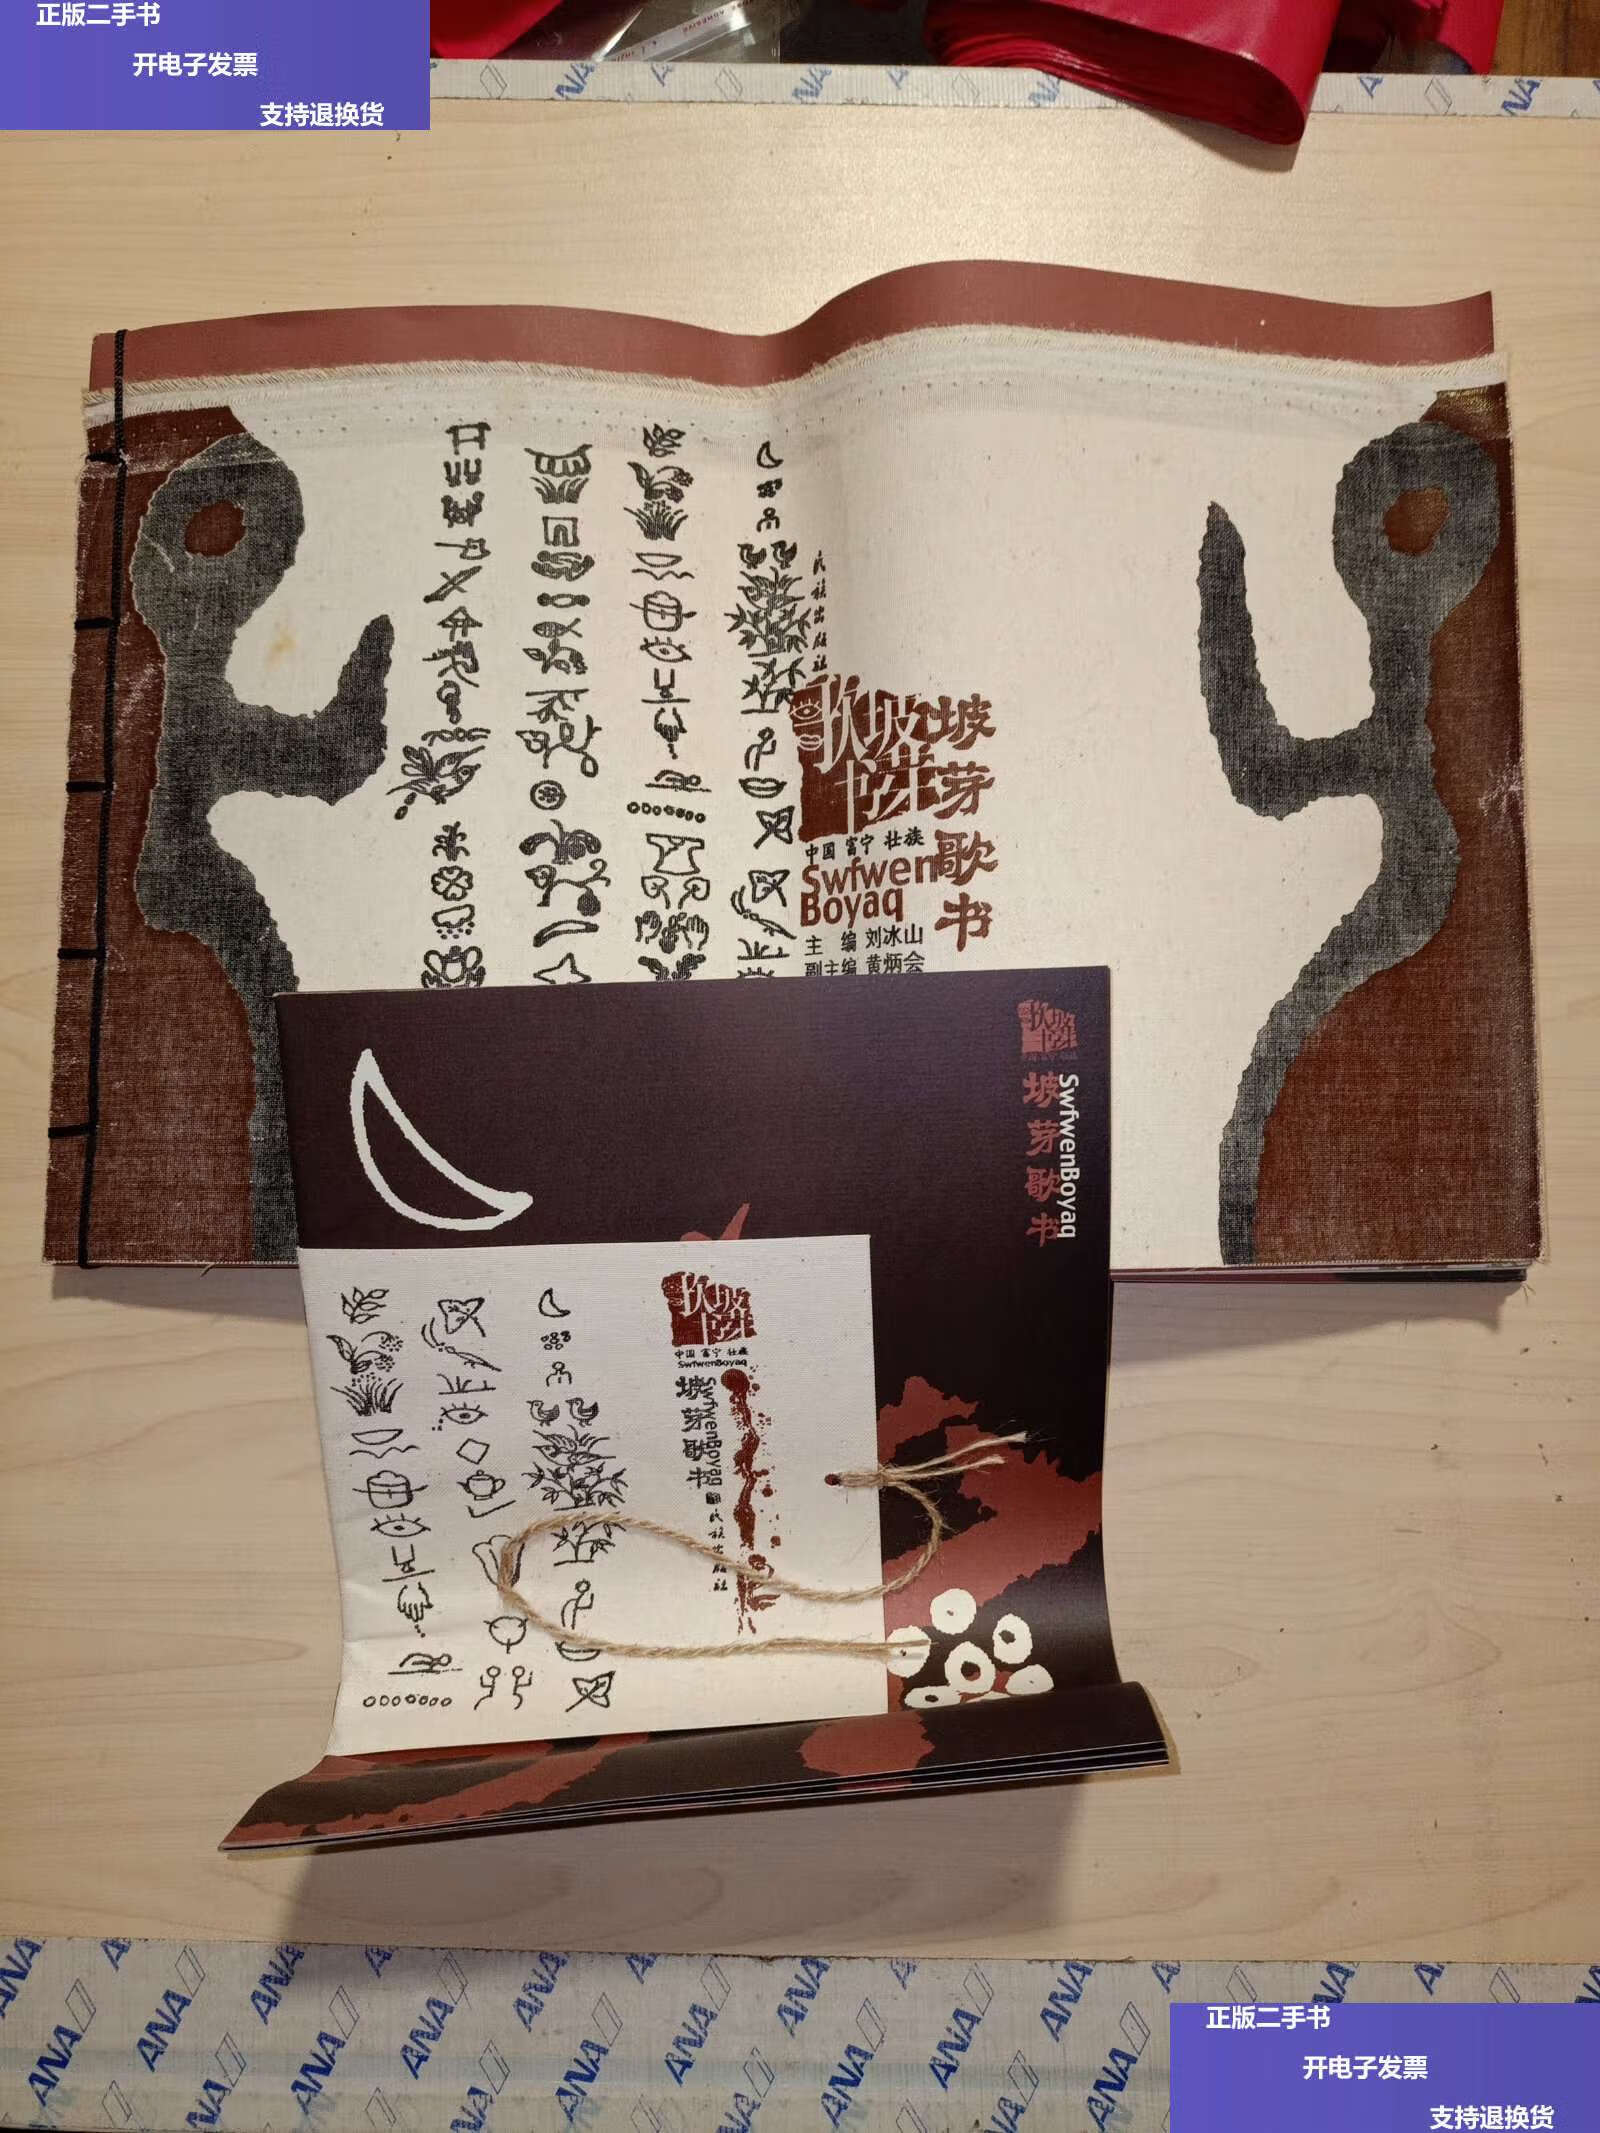 正版二手书
开电子发票
支持退换货
民族出版社
坡芽歌书
坡芽歌书
中国 富宁 壮族
Swfwen
Boyaq
主 编 刘冰山
副主编 黄炳会
坡芽歌书
坡芽歌书
SwfwenBoyaq
坡芽歌书
中国 富宁 壮族
SwfwenBoyaq
坡芽歌书
SwfwenBoyaq
民族出版社
ANA
ANA
ANA
ANA
ANA
ANA
ANA
ANA
ANA
正版二手书
开电子发票
支持退换货